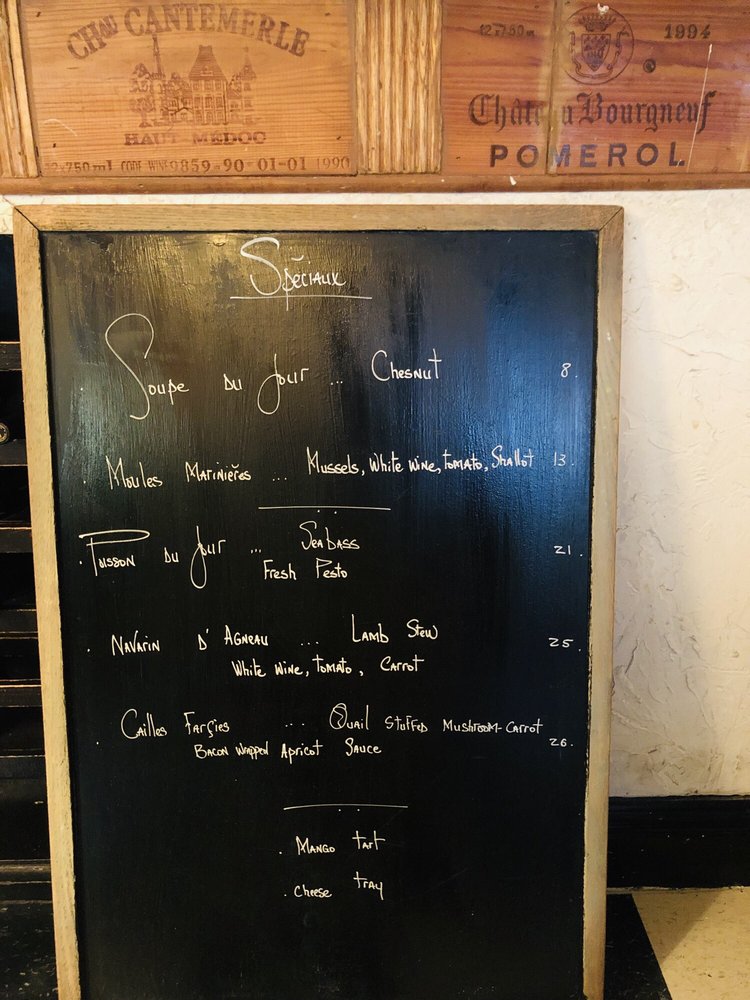 CHAU CANTEMERLE
HAUT-MEDOC
12x750ml CODE WINE 9859-90-01-01 1990
12x750ml 1994
Château Bourgneuf
POMEROL
Spěciaux
Soupe du Jour ... Chesnut 8.
. Moules Marinières ... Mussels, White wine, tomato, Shallot 13.
. Poisson du Jour ... Seabass 21.
Fresh Pesto
. Navarin d'Agneau ... Lamb Stew 25.
White wine, tomato, Carrot
. Cailles Farçies ... Quail stuffed Mushroom-Carrot
Bacon wrappen Apricot Sauce 26.
. Mango tart
. Cheese tray